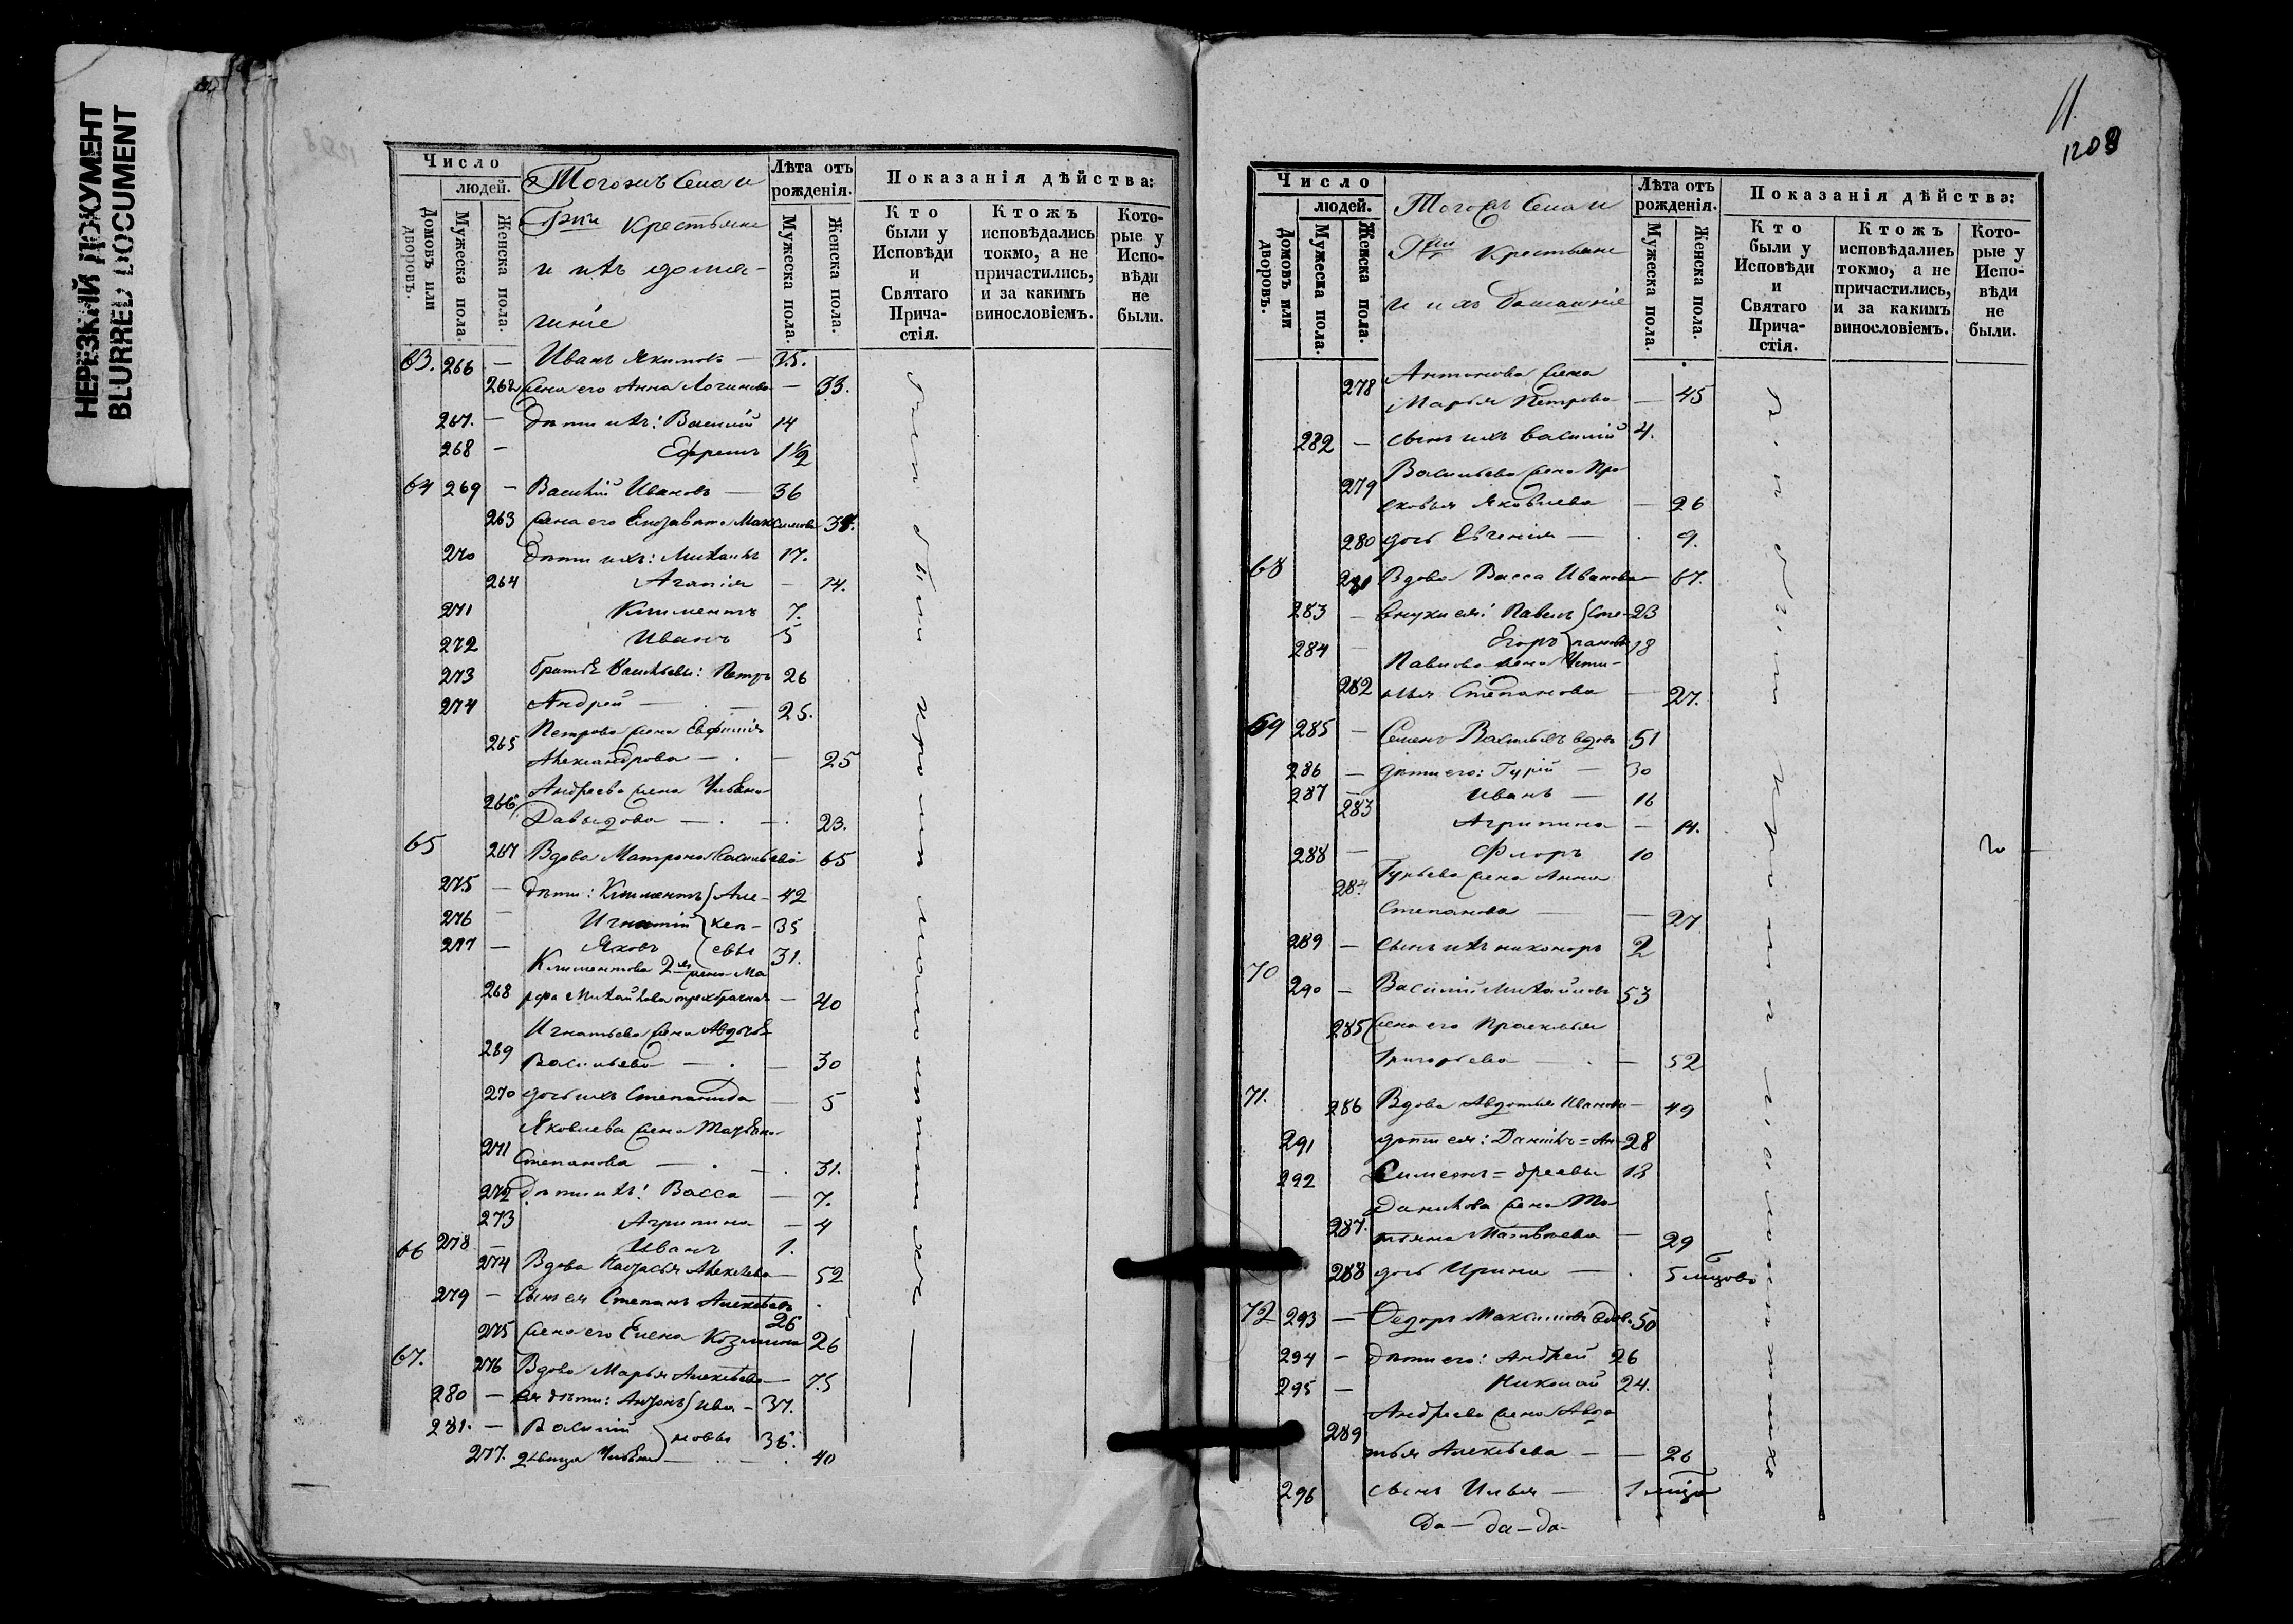 НЕРЕЗКИЙ ДОКУМЕНТ
BLURRED DOCUMENT
Число
людей.
Домовъ или дворовъ.
Мужеска пола.
Женска пола.
Тогожъ Села и
крестьяне
и ихъ домаш-
ніе
Лѣта отъ рожденія.
Мужеска пола.
Женска пола.
Показанія дѣйства:
Кто были у Исповѣди и Святаго Причастія.
Ктожъ исповѣдались токмо, а не причастились, и за какимъ винословіемъ.
Которые у Исповѣди не были.
63. 266 — Иванъ Якимовъ — 35.
262 жена его Анна Логинова — 33.
267. — дѣти ихъ: Василій 14
268 — Ефремъ 1 1/2
64 269 — Василій Ивановъ — 36
263 жена его Елизавета Максимова 38.
270 дѣти ихъ: Михаилъ 17.
264 Агапія — 14.
271 Климентъ 7.
272 Иванъ 5
273 братья Васильевы: Петръ 26
274 Андрей — 25.
265 Петрова жена Евфимія
Александрова — 25
266 Андреева жена Ульяна
Давыдова — 23.
65 267 Вдова Матрона Васильева 65
275 — дѣти: Климентъ Але- 42
276 — Игнатій ксѣ- 35
277 — Яковъ евы 31.
Климентова 2я жена Ма
268 рфа Михайлова — 40
Игнатьева жена Авдотья
269 Васильева — 30
270 дочь ихъ Степанида — 5
Яковлева жена Татьяна
271 Степанова — 31.
272 дѣти ихъ: Васса — 7.
273 Агрипина — 4
278 — Иванъ 1.
66 274 Вдова Настасья Алексѣева — 52
279 — Сынъ ея Степанъ Алексѣевъ 26
275 жена его Елена Козмина 26
67. 276 Вдова Марья Алексѣева — 75
280 — ея дѣти: Антонъ Ива- 37.
281. — Василій новы 36.
277. дѣвица Ульяна — 40
были при томъ
11.
1209
Число
людей.
Домовъ или дворовъ.
Мужеска пола.
Женска пола.
Тогожъ Села и
крестьяне
и ихъ домашніе
Лѣта отъ рожденія.
Мужеска пола.
Женска пола.
Показанія дѣйства:
Кто были у Исповѣди и Святаго Причастія.
Ктожъ исповѣдались токмо, а не причастились, и за какимъ винословіемъ.
Которые у Исповѣди не были.
278 Антонова жена
Марья Петрова — 45
282 — сынъ ихъ Василій 4.
Васильева жена Пра
279 сковья Яковлева — 26
280 дочь Евгенія — 9.
68 281 Вдова Васса Иванова — 67.
283 — внуки ея: Павелъ Сте- 23
284 — Егоръ пановы 18
Павлова жена Усти-
282 нья Степанова — 27.
69 285 — Семенъ Васильевъ вдовъ 51
286 — дѣти его: Гурій — 30
287 — Иванъ — 16
283 Агрипина — 14.
288 — Флоръ 10
284 Гурьева жена Анна
Степанова — 27
289 — сынъ ихъ Никоноръ 2
70 290 — Василій Михайловъ 53
285 жена его Прасковья
Григорьева — 52
71. 286 Вдова Авдотья Иванова — 49
291 дѣти ея: Данилъ = Ан- 28
292 Симеонъ = дреевы 13
Данилова жена Та-
287. тьяна Матвѣева — 29
288 дочь Ирина — 5 мѣсяцовъ
72 293 — Ѳедоръ Максимовъ вдов. 50
294 — дѣти его: Андрей 26
295 — Николай 24.
Андреева жена Авдо
289 тья Алексѣева — 26
296 сынъ Илья — 1 мѣсяц
Да — да — да